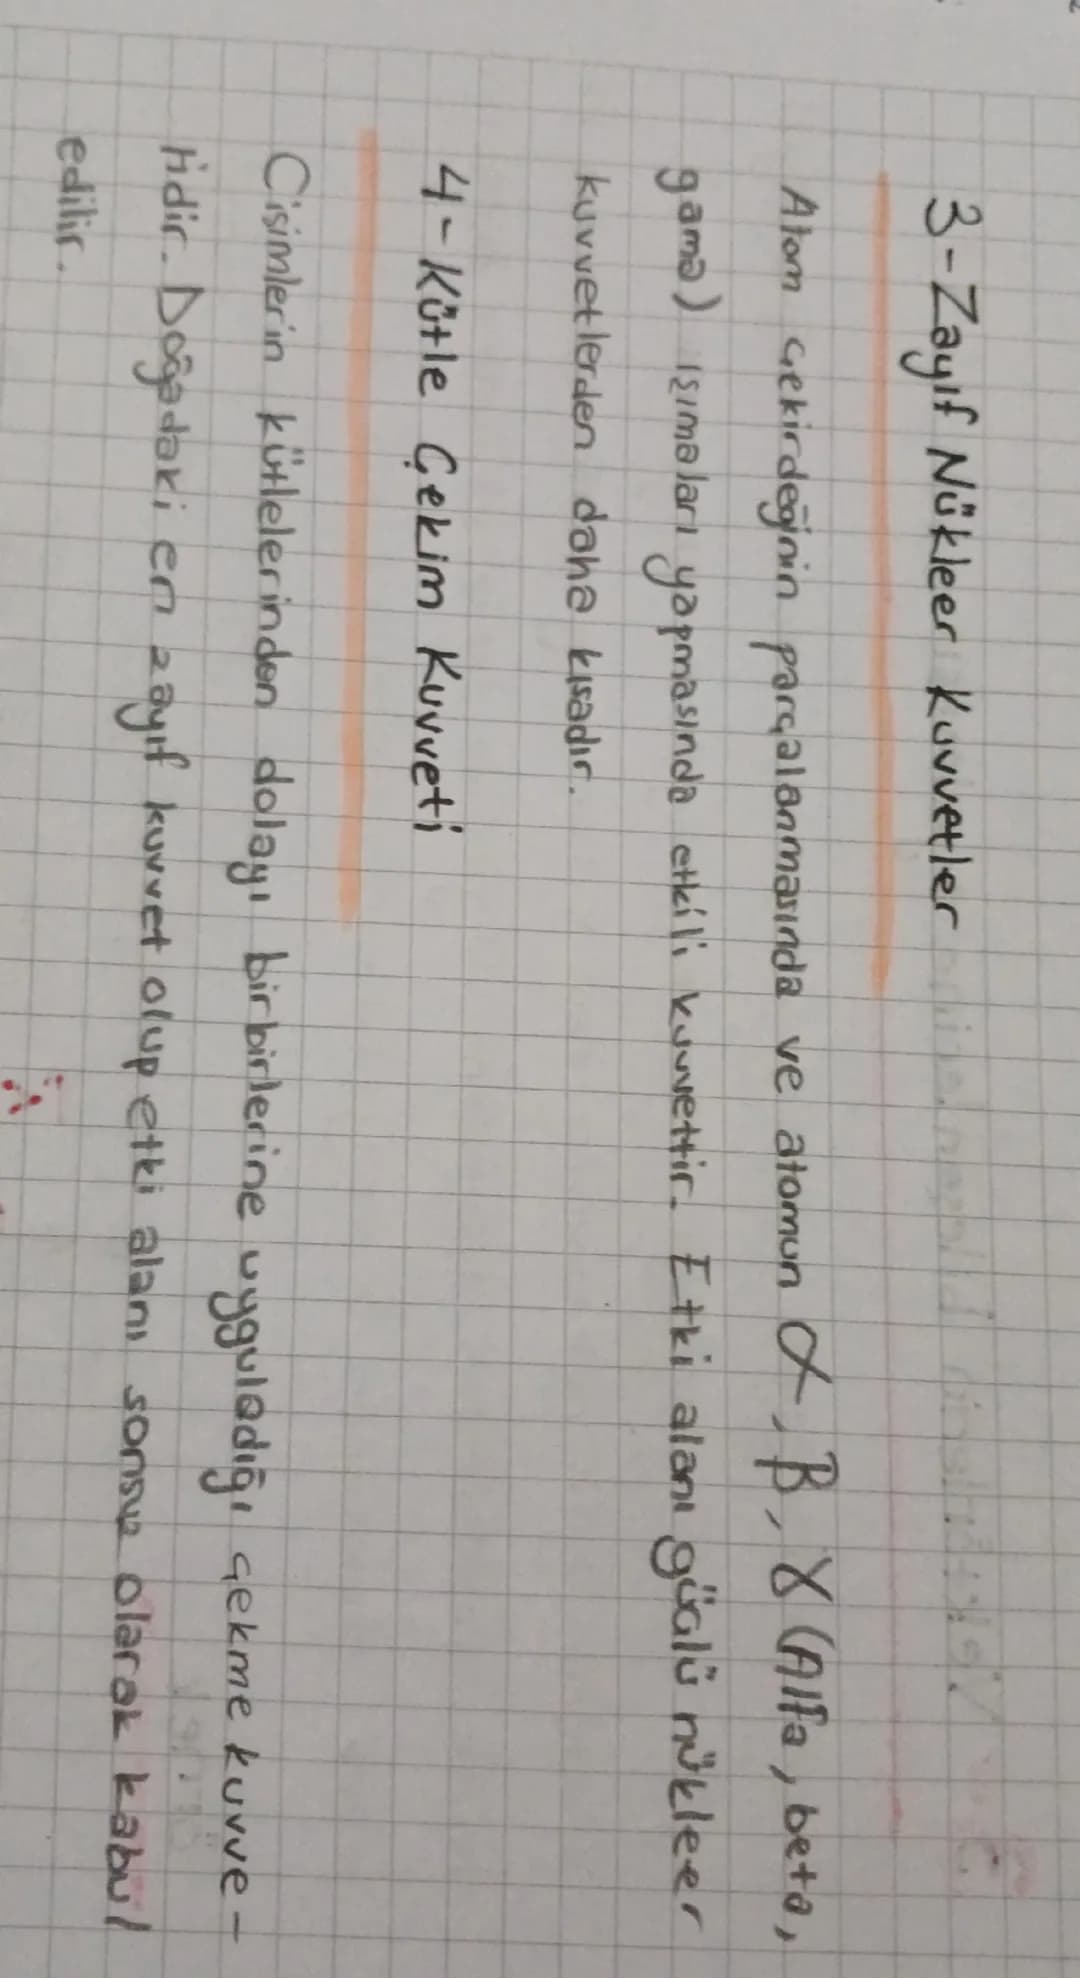 3-Zayıf Nükleer Kuvvetler
Atom çekirdeğinin parçalanmasında ve atomun α, β, γ (Alfa, beta,
gama) ışımaları yapmasında etkili kuvvettir. Etki alanı güçlü nükleer
kuvvetlerden daha kısadır.
4-Kütle Çekim Kuvveti
Cisimlerin kütlelerinden dolayı birbirlerine uyguladığı çekme kuvve-
tidir. Doğadaki en zayıf kuvvet olup etki alanı sonsuz olarak kabul
edilir.